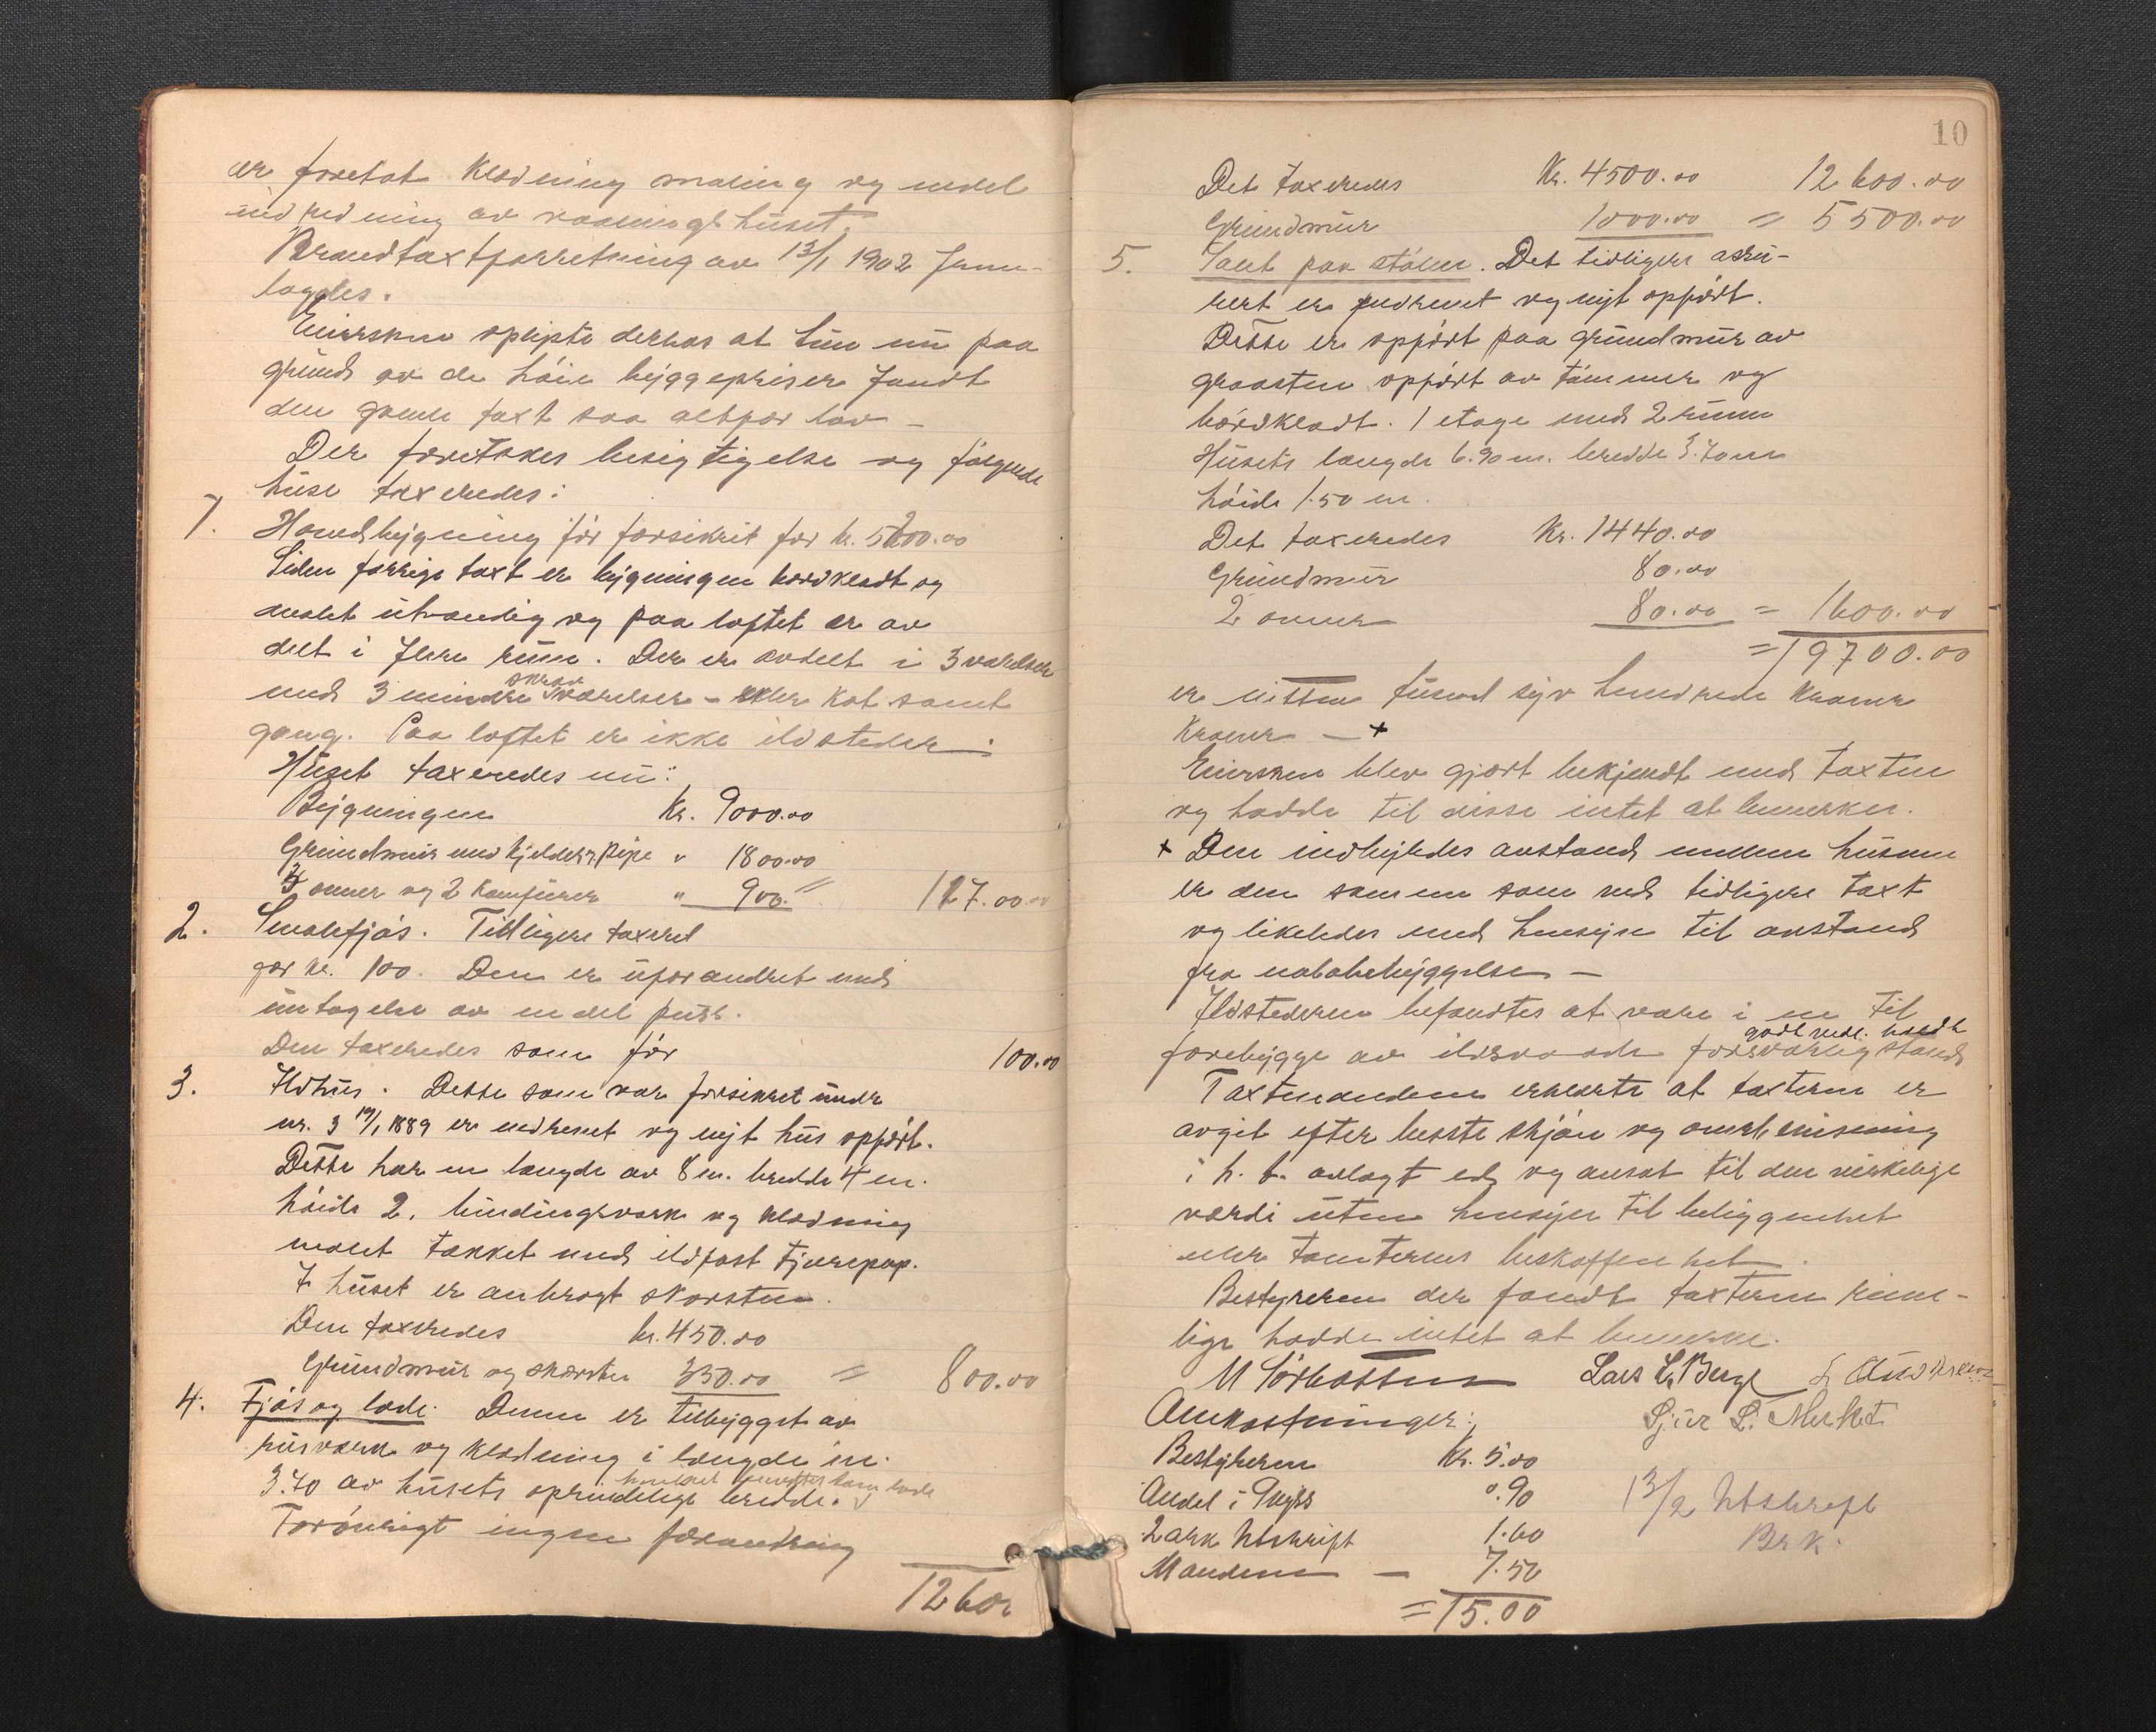 er foretat klædning maling og endel
indredning av vaaningshuset.
Brandtaxtforretning av 13/1 1902 frem-
lagdes.
Eiersken oplyste derhos at hun nu paa
grund av de høie byggepriser fandt
den gamle taxt saa altfor lav –
Der foretokes besigtigelse og følgende
huse taxeredes:
1. Hovedbygning før forsikret for kr. 5200.00
Siden forrige taxt er bygningen bordklædt og
malet utvendig og paa loftet er av
delt i flere rum. Der er avdelt i 3 værelser
med 3 mindre skraa værelser – eller kot samt
gang. Paa loftet er ikke ildsteder.
Huset taxeredes nu:
Bygningen Kr. 9000.00
Grundmur med kjelder, pipe " 1800.00
3 ovner og 2 komfurer " 900. = 117.00.00
2. Smalefjøs. Tidligere taxeret
for kr. 100. Den er uforandret med
untagelse av endel puss.
Den taxeredes som før 100.00
3. Ildhus. Dette som var forsikret under
nr. 3 19/1 1889 er nedrevet og nyt hus opført.
Dette har en længde av 8 m. bredde 4 m.
høide 2. bindingsverk og klædning
malt tækket med ildfast tjærepap.
I huset er anbragt skorsten.
Den taxeredes kr. 450.00
Grundmur og skorsten 350.00 = 800.00
4. Fjøs og lade. Denne er tilbygget av
reisverk og klædning i længde m.
3.70 av husets oprindelige bredde.
Forøvrigt ingen forandring
12600
10
Det taxeredes Kr. 4500.00 12600.00
Grundmur 1000.00 = 5500.00
5. Sæl paa stølen. Det tidligere assu-
rert er nedrevet og nyt opført.
Dette er opført paa grundmur av
graasten opført av tømmer og
bordklædt. 1 etage med 2 rum
Husets længde 6.90 m. bredde 3.70 m
høide 1.50 m.
Det taxeredes Kr. 1440.00
Grundmur 80.00
2 ovner 80.00 = 1600.00
= 19700.00
er nitten tusend syv hundrede kroner
Kroner – +
Eiersken blev gjort bekjendt med taxten
og hadde til disse intet at bemerke.
+ Den indbyrdes avstand mellem husene
er den samme som ved tidligere taxt
og likeledes med hensyn til avstand
fra nabobebyggelse –
Ildstederne befandtes at være i en til
forebygge av ildsvaade forsvarlig stand
godt vedl. holdt
Taxtmændene erklærte at taxterne er
avgit efter beste skjøn og overbevisning
i h. t. avlagt ed og ansat til den virkelige
værdi uten hensyn til beliggenhet
eller tomternes beskaffenhet.
Bestyreren der fandt taxterne rime-
lige hadde intet at bemerke.
M Sørbotten Lars L. Berge
Omkostninger: Sjur L. Merket
Bestyreren Kr. 5.00
Andel i Skyss 0.90
2 ark Utskrift 1.60
Mændene — 7.50
= 15.00
13/2 Utskreft
Br k.